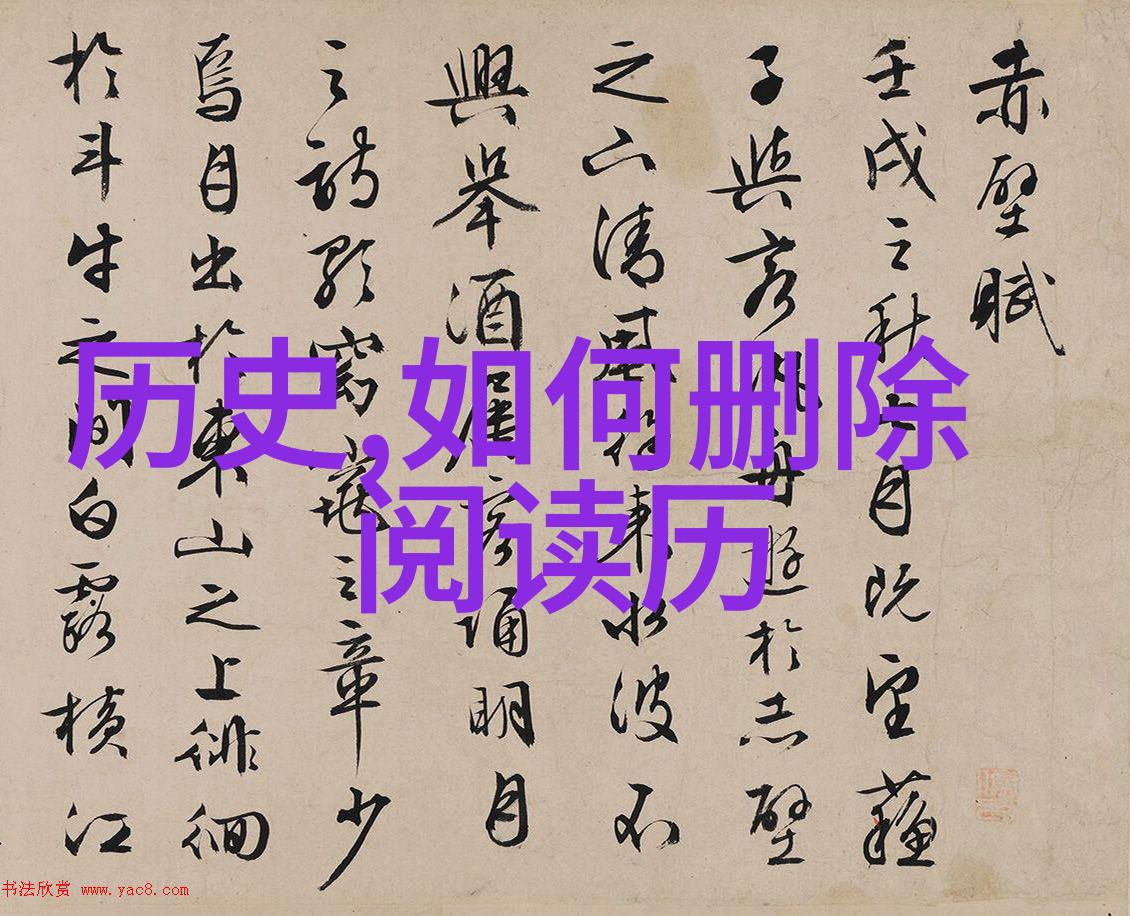 赤壁賦
壬戌之秋七月既望蘓
子與客泛舟遊於赤壁
之下清風徐來水波不
興舉酒屬客誦明月
之詩歌窈窕之章少
焉月出於東山之上徘徊
於斗牛之間白露橫江
历史,如何删除
阅读历
书法欣赏 www.yac8.com